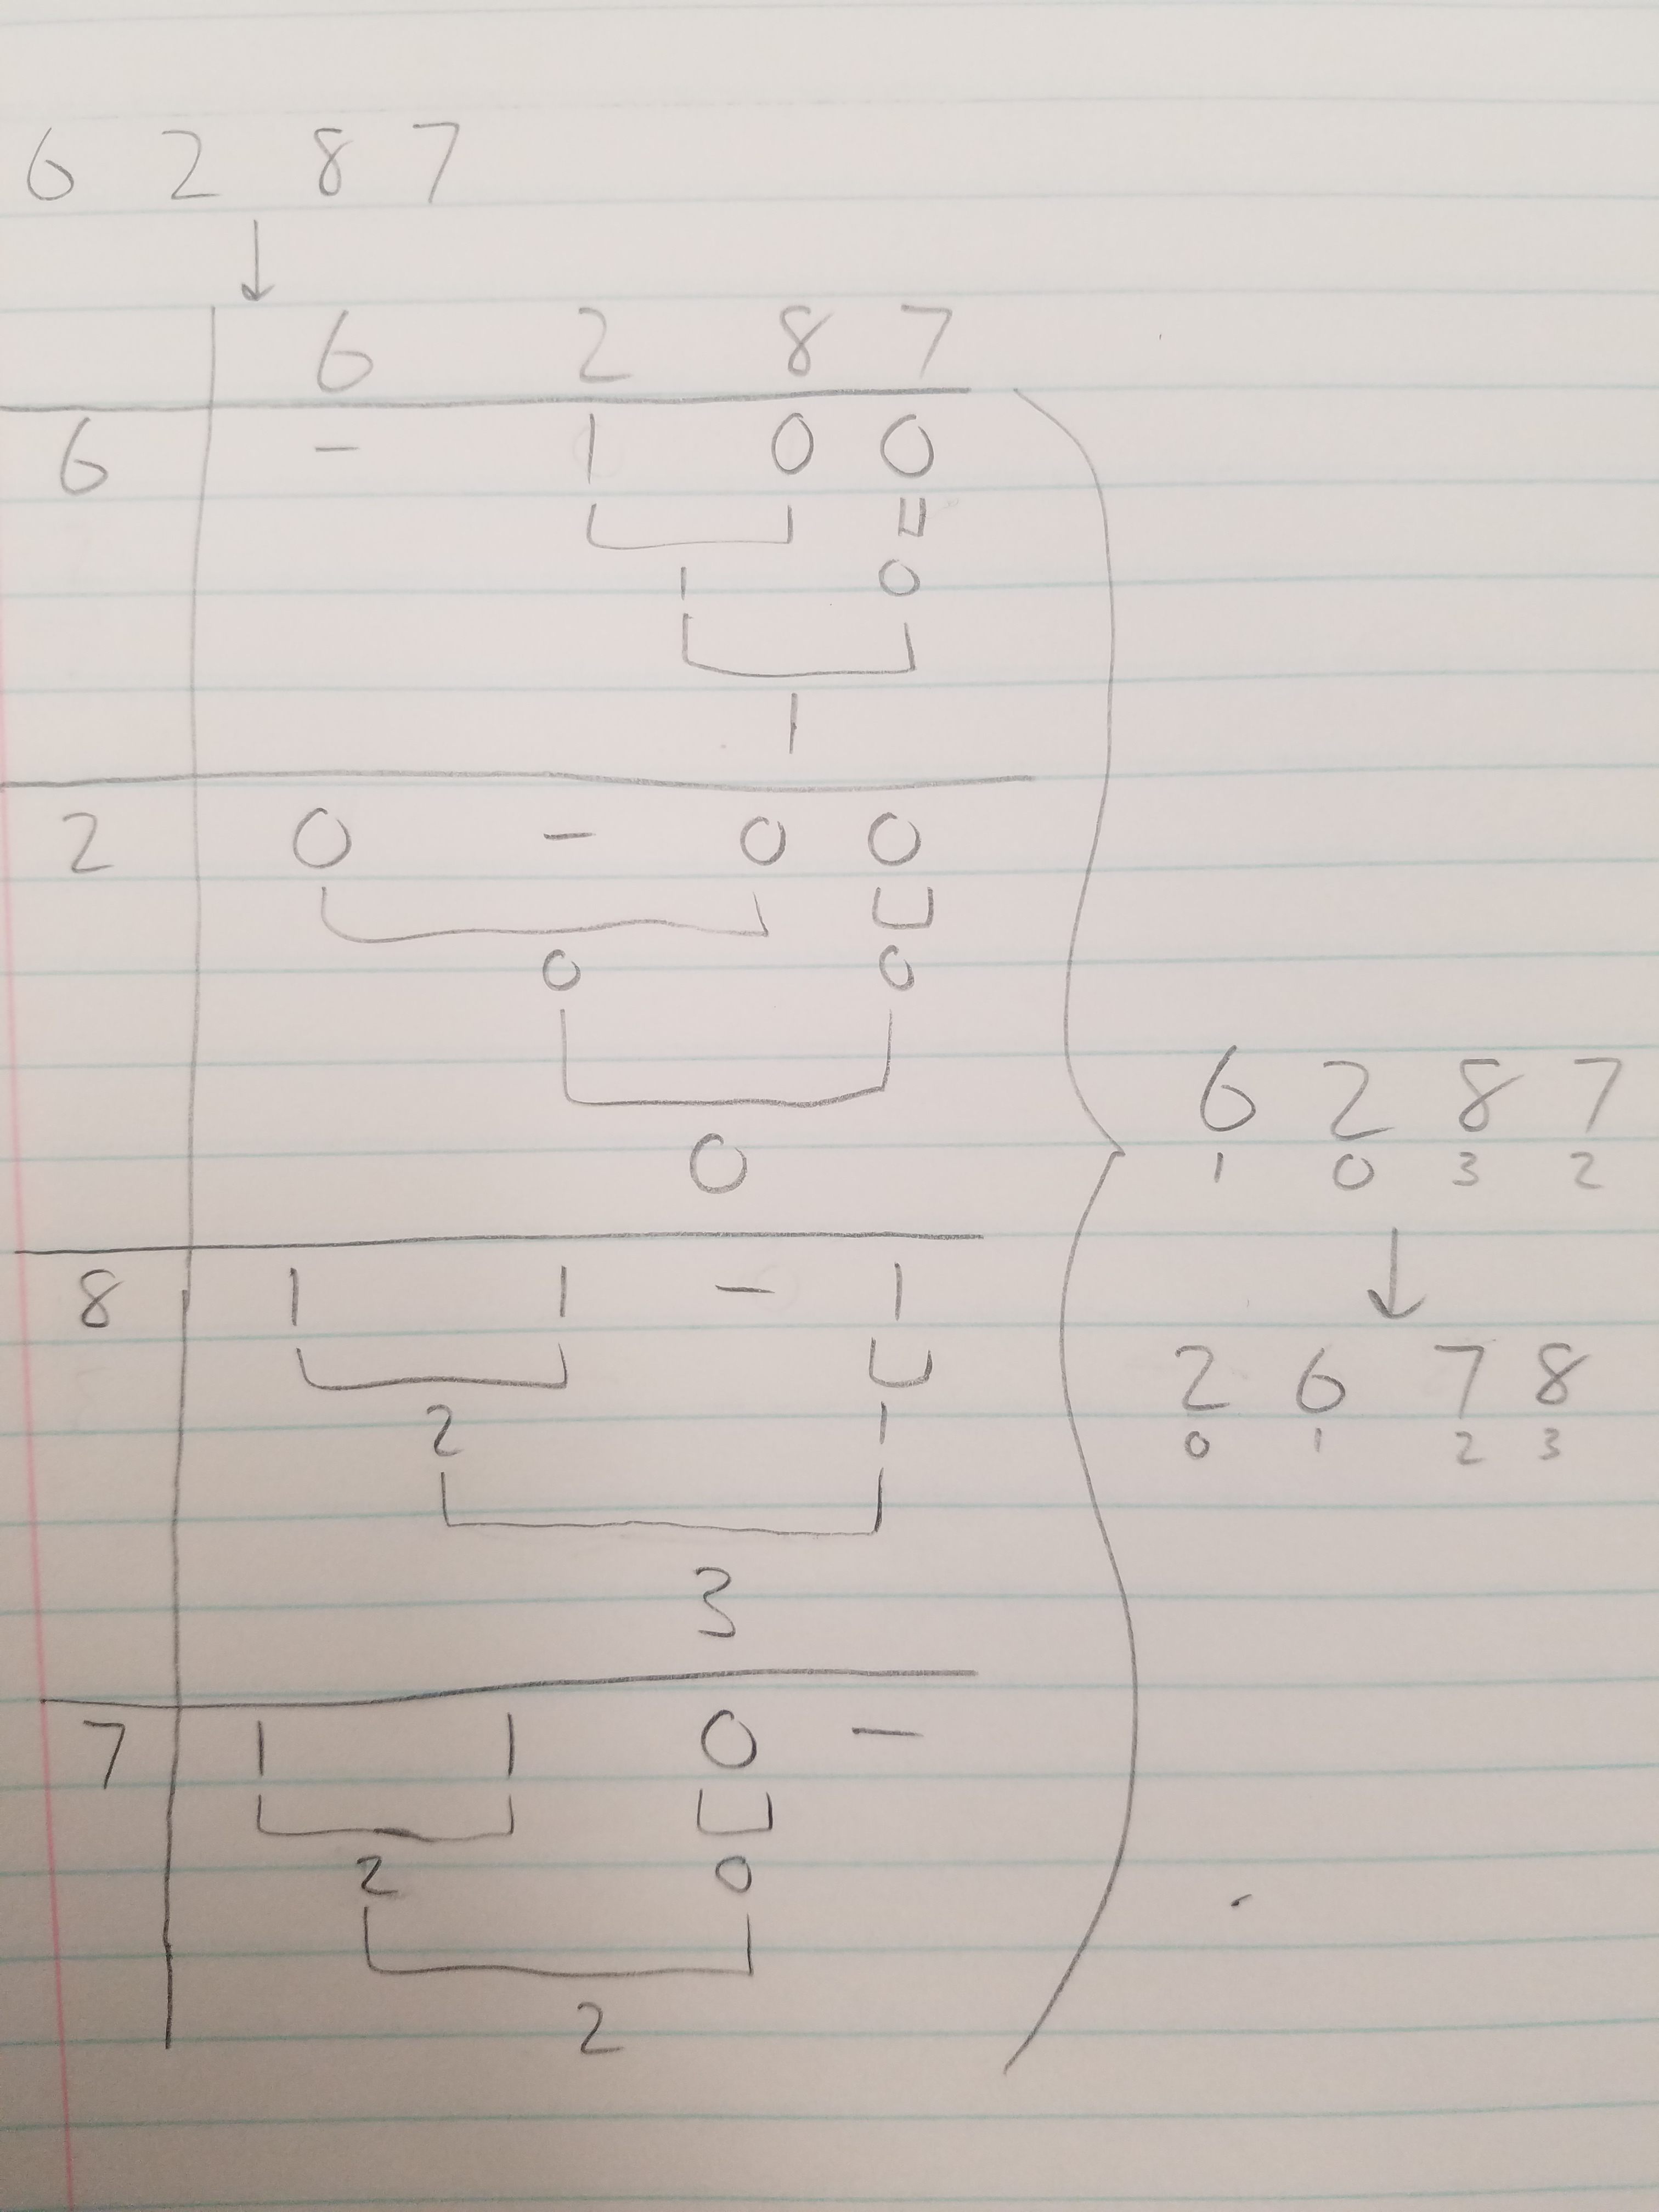 6 2 8 7
↓
6 2 8 7
6 - 1 0 0
1 0
1
2 0 - 0 0
0 0
0
8 1 1 - 1
2 1
3
7 1 1 0 -
2 0
2
6 2 8 7
1 0 3 2
↓
2 6 7 8
0 1 2 3